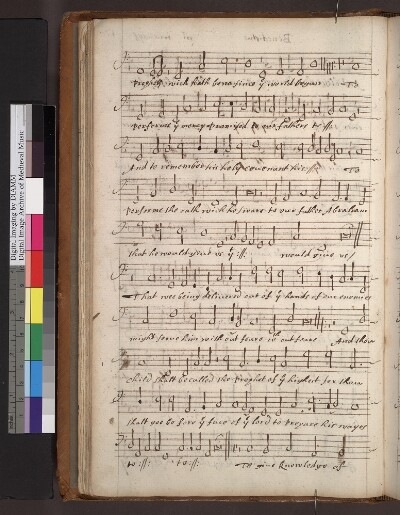 Benedictus
Prophets wich hath bene since ẏ world began To
performe ẏ mercy promised to our fathers :||:
And to remember his holy covenant his :||: To
performe the oath wich he sware to our father Abraham
that he would give us ẏ :||: would give us /
That wee being delivered out of ẏ hands of our enemies
might serve him with out feare with out feare And thou
child shalt be called the Prophet of ẏ highest for thou
shalt goe before ẏ face of ẏ lord to prepare his wayes
to :||: to :||: To give knowledge of
Digital Imaging by DIAMM
Digital Image Archive of Medieval Music